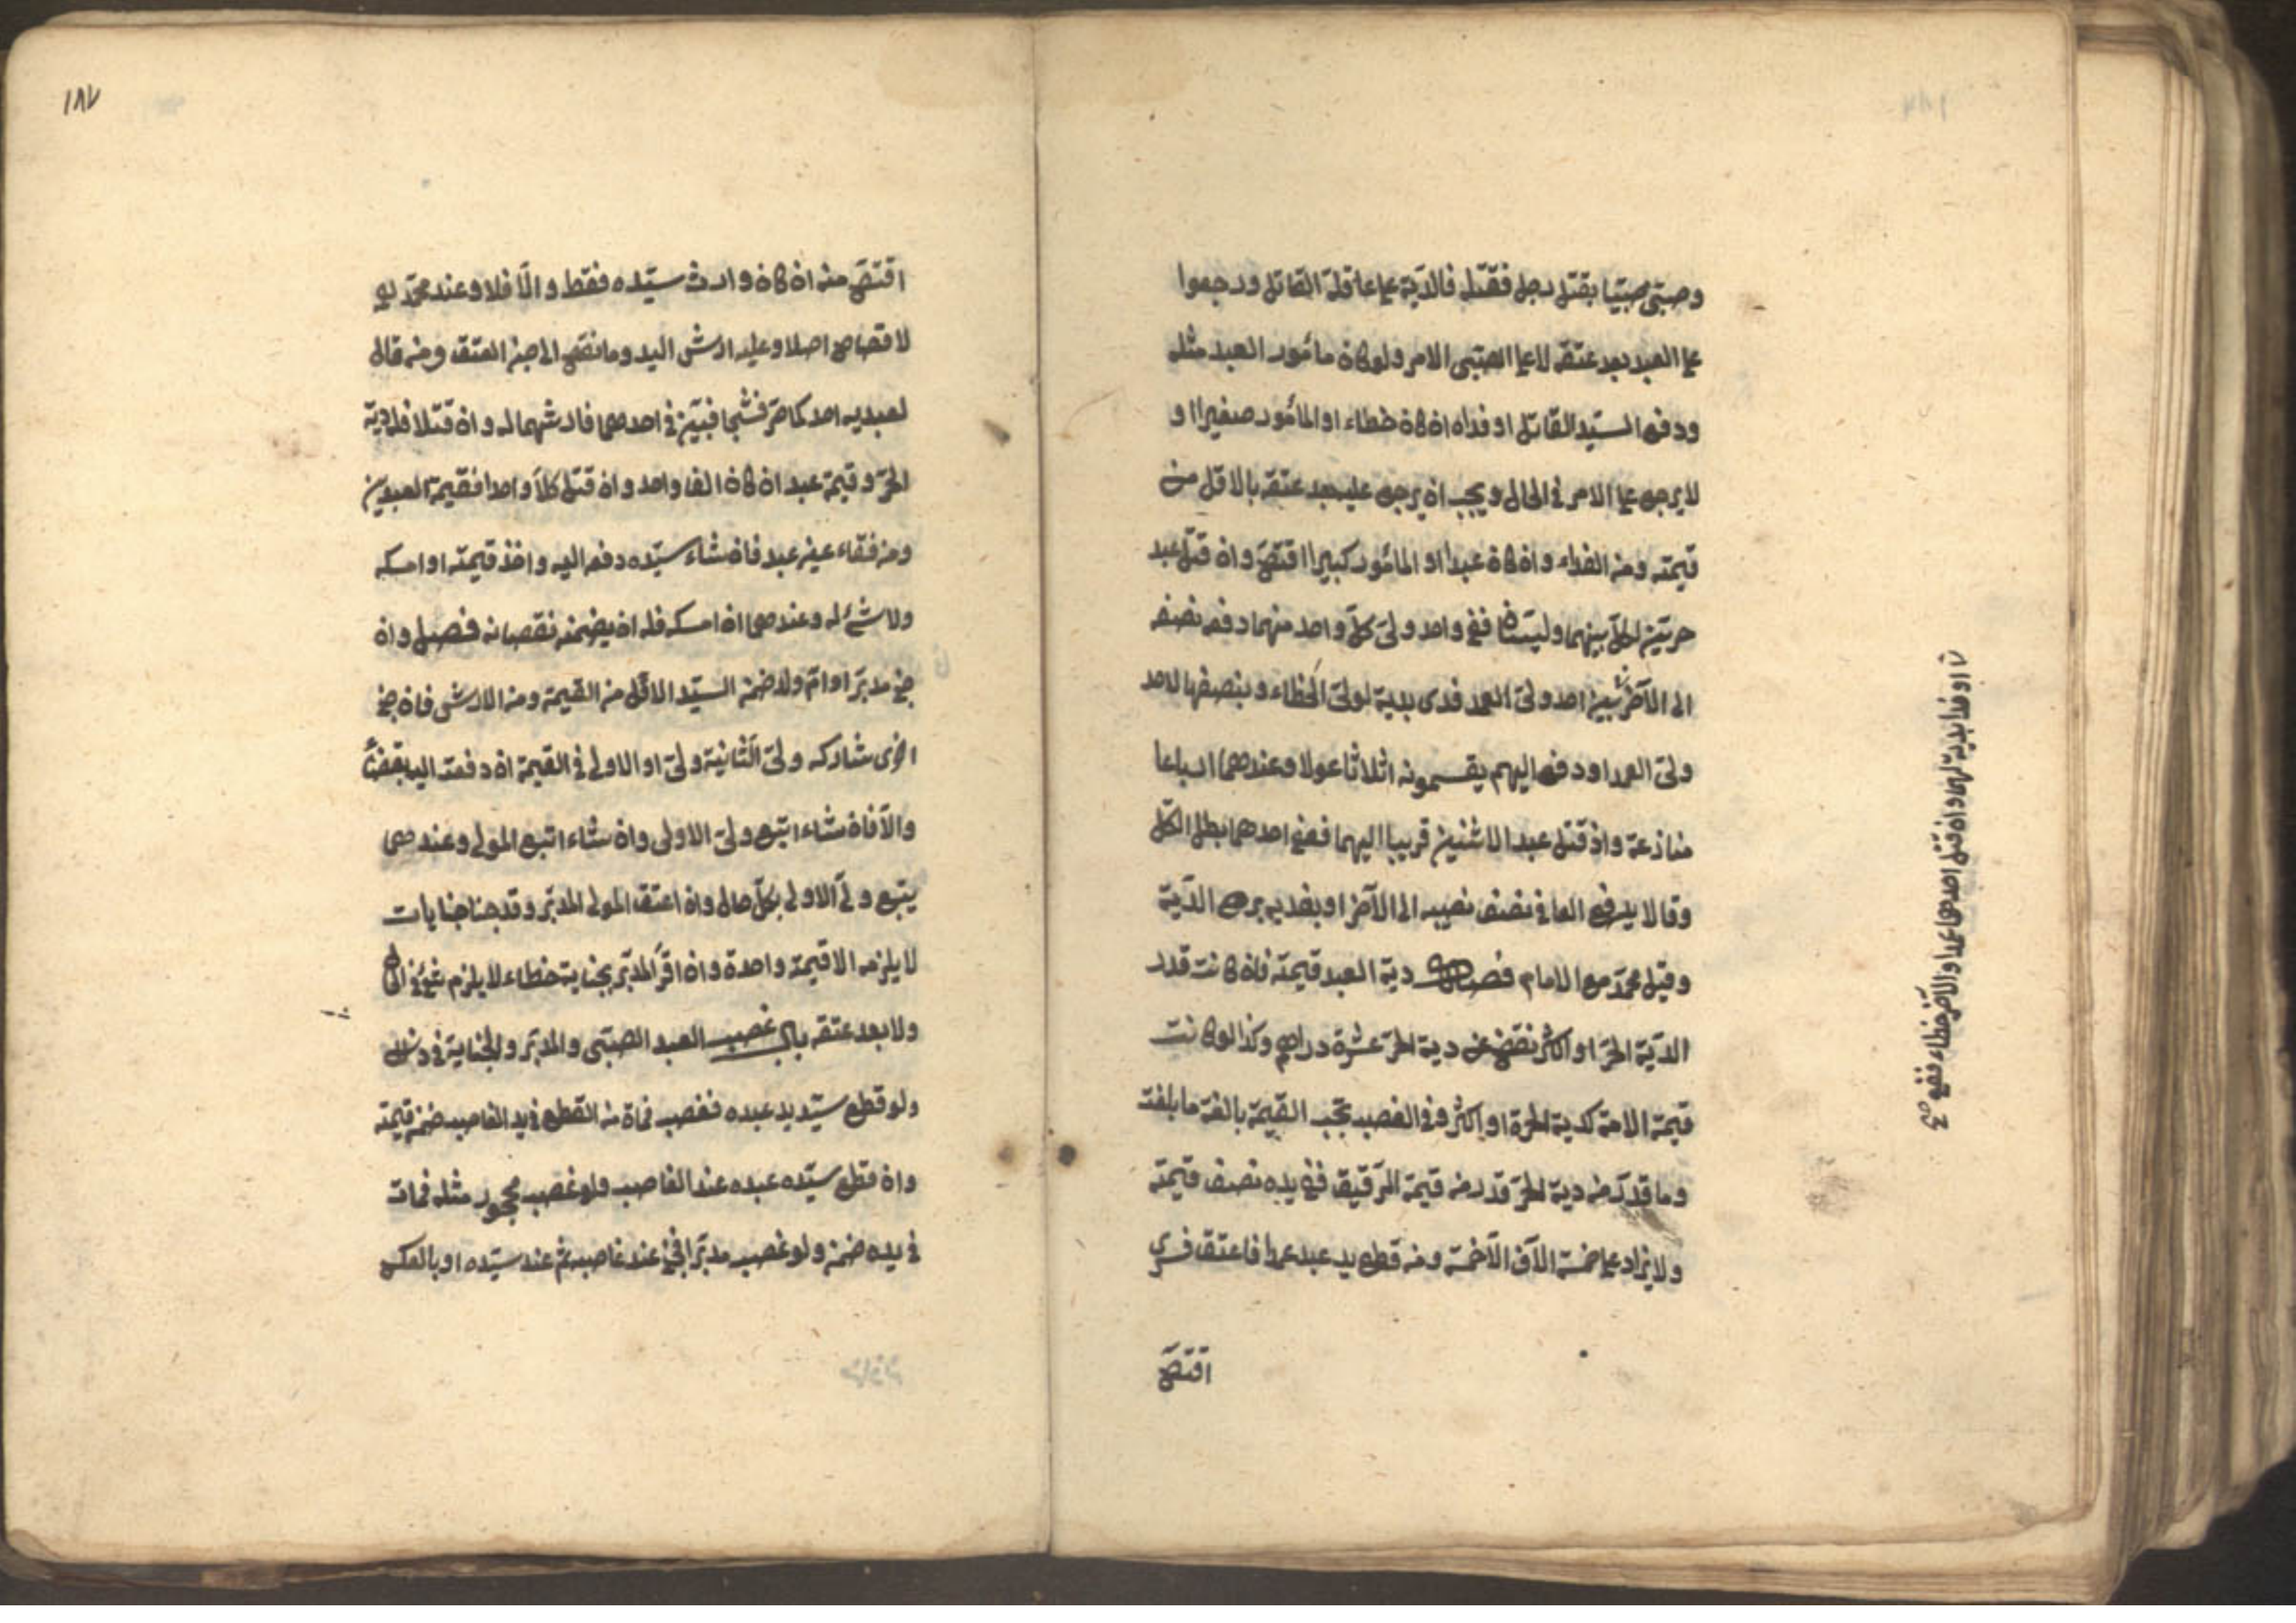 وصبىّ صبيّا بقتل رجل فقتله فالديّة على عاقلة القاتل ورجعوا
على العبد بعد عتقه لا على الصبّى الامر ولو كان مأمور العبد مثله
ودفع السيّد القاتل او فداه ان كان خطاء او المأمور صغيرا و
لا يرجع على الامر في الحال ويجب ان يرجع عليه بعد عتقه بالاقل من
قيمته ومن الفداء وان كان عبدا او المأمور كبيرا اقتصّ وان قتل عبد
حريّن لكلّ بينهما وليّان فعفى واحد ولىّ كلّ واحد منهما دفع نصفه
الى الآخرين احد ولىّ العمد فدى بدية لولىّ الخطاء وبنصفها لاحد
ولىّ العمد او دفع اليهم يقسمونه اثلاثا عولا وعندهما ارباعا
منازعة وان قتل عبد الاثنين قريبا اليهما فعفى احدهما بطل الكلّ
وقالا يدفع العافى نصف نصيبه الى الآخر او يفديه بربع الديّة
وقيل محمّد مع الامام فصل دية العبد قيمته فان كانت قدر
الديّة الحرّ او اكثر نقص عن دية الحرّ عشرة دراهم وكذا لو كانت
قيمة الامة كدية الحرة او اكثر وفى الغصب تجب القيمة بالغة ما بلغت
وما قدّر من دية الحرّ قدر من قيمة الرّقيق ففى يده نصف قيمته
ولا يزاد على خمسة الآف الّا خمسة ومن قطع يد عبد عمدا فاعتق فسرى
اقتصّ
او فدا بدية لهما وان قتل احدهما عمدا والآخر خطاء فعفى صح
١٨٧
اقتصّ منه ان كان وارث سيّده فقط والّا فلا وعند محمّد
لا قصاص اصلا وعليه ارش اليد وما نقص الى حين العتق ومن قال
لعبديه احدكما حرّ فشجا فبيّن في احدهما فارشهما له وان قتلا فله دية
الحرّ وقيمة عبد ان كان القا واحد وان قتل كلّا واحد فقيمة العبدين
ومن فقاء عينى عبد فان شاء سيّده دفعه اليه واخذ قيمته او امسكه
ولا شئ له وعندهما ان امسكه فله ان يضمنه نقصانه فصل وان
جنى مدبّر او امّ ولد ضمن السيّد الاقل من القيمة ومن الارش فان جنى
اخرى شاركه ولىّ الثانية ولىّ او الاولى في القيمة ان دفعت اليه بقضاء
والّا فان شاء اتبع ولىّ الاولى وان شاء اتبع المولى وعندهما
يتبع ولىّ الاولى بكلّ حال وان اعتق المولى المدبّر وقد جنا جنايات
لا يلزمه الا قيمة واحدة وان اقرّ المدبّر بجناية خطاء لا يلزم شئ في الحال
ولا بعد عتقه باب غصب العبد الصبّى والمدبّر والجناية في ذلك
ولو قطع سيّد يد عبده فغصب فمات من القطع في يد الغاصب ضمن قيمته
وان قطع سيّده عبده عند الغاصب ولو غصب محجور مثله فمات
في يده ضمن ولو غصب مدبّرا فجنى عند غاصبه ثم عند سيّده او بالعكس